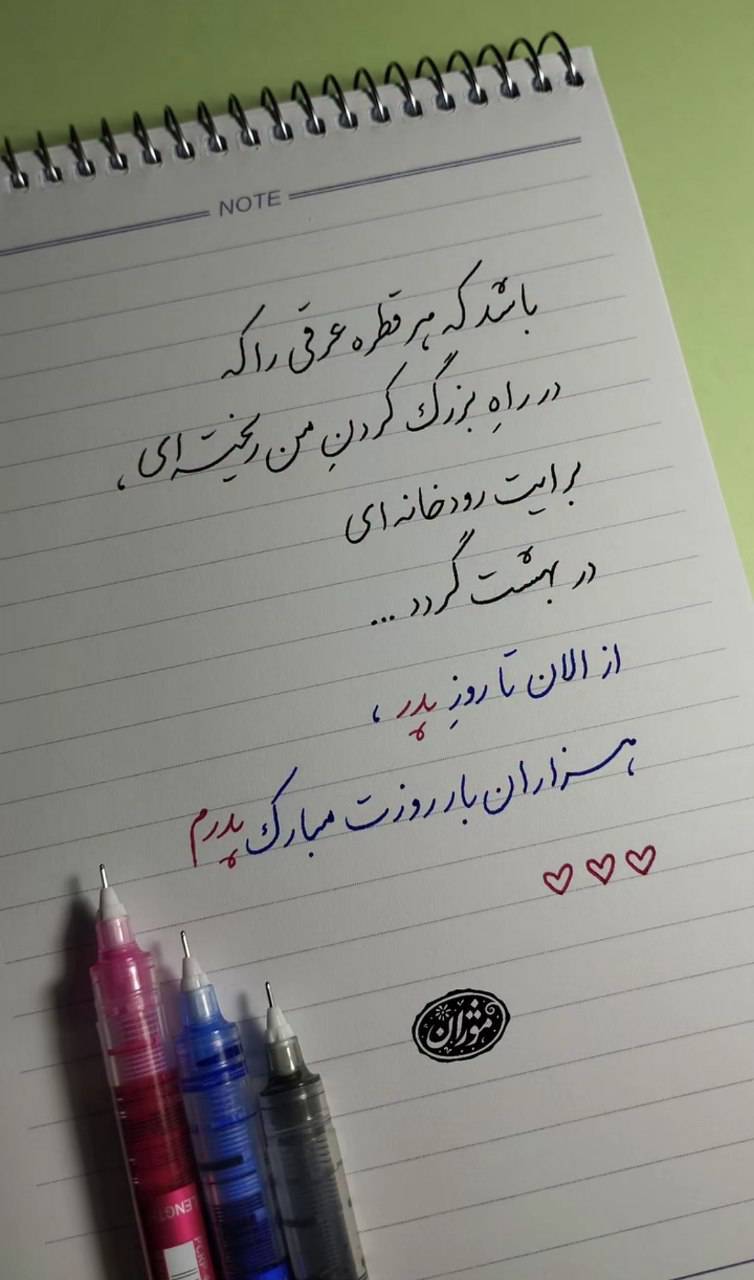 NOTE
باشد که هر قطره عرقی را که
در راهِ بزرگ کردنِ من ریخته‌ای،
برایت رودخانه‌ای
در بهشت گردد ...
از الان تا روزِ پدر،
هزاران بار روزت مبارک پدرم
♡ ♡ ♡